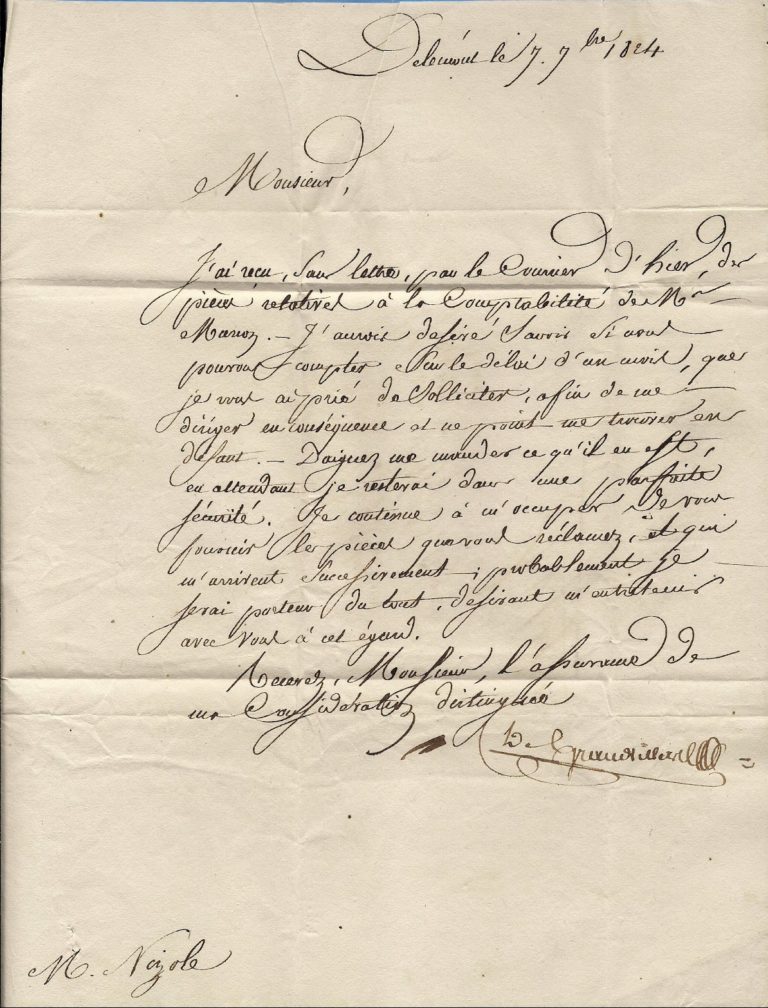 Delémont le 7. 7bre 1824
Monsieur,
J'ai recu, sans lettre, par le Courrier d'hier, des
pièces relatives à la Comptabilité de Mr
— J'aurois desiré savoir si nous
pouvons compter sur le délai d'un mois, que
je vous ai prié de solliciter, afin de me
diriger en conséquence et ne point me trouver en
défaut. — Daignez me mander ce qu'il en est,
en attendant je resterai dans une parfaite
sécurité. Je continue à m'occuper de vous
fournir les pièces que vous réclamez, et qui
m'arrivent successivement ; probablement je
serai porteur du tout, desirant m'entretenir
avec vous à cet égard.
Recevez, Monsieur, l'assurance de
ma Considération distinguée
De Grandvillers
M. Nizole